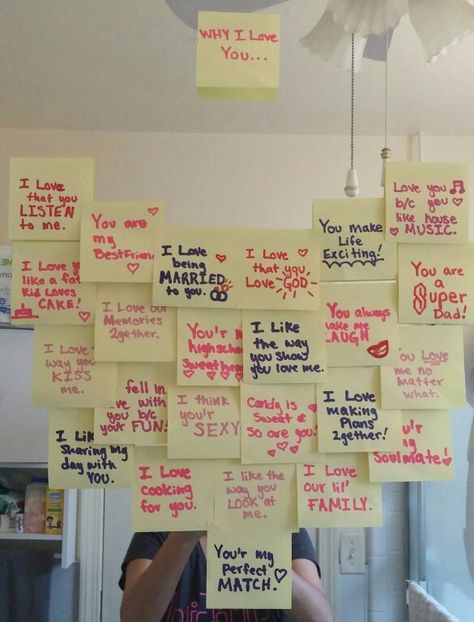 WHY I Love
You...
I Love
that you
LISTEN
to me.
You are
my
Bestfriend
I Love
being
MARRIED
to you.
I Love
that you
Love GOD
You MAKE
Life
Exciting!
Love you
b/c you
like house
MUSIC.
I Love you
like a fat
Kid Loves
CAKE!
I Love our
Memories
2gether.
You'r my
highschool
Sweetheart
I Like
the way
you show
you love me.
You always
make me
LAUGH
You are
a Super
Dad!
I Love
way you
KISS
me.
fell in
Love with
you b/c
your FUN!
I think
you'r
SEXY
Candy is
Sweet &
so are you!
I Love
making
Plans
2gether!
You Love
me no
matter
what.
I Like
Sharing my
day with
YOU.
I Love
cooking
for you.
I like the
way you
LOOK at
me.
I Love
our lil'
FAMILY.
You'r
my
Soulmate!
You'r my
perfect
MATCH.